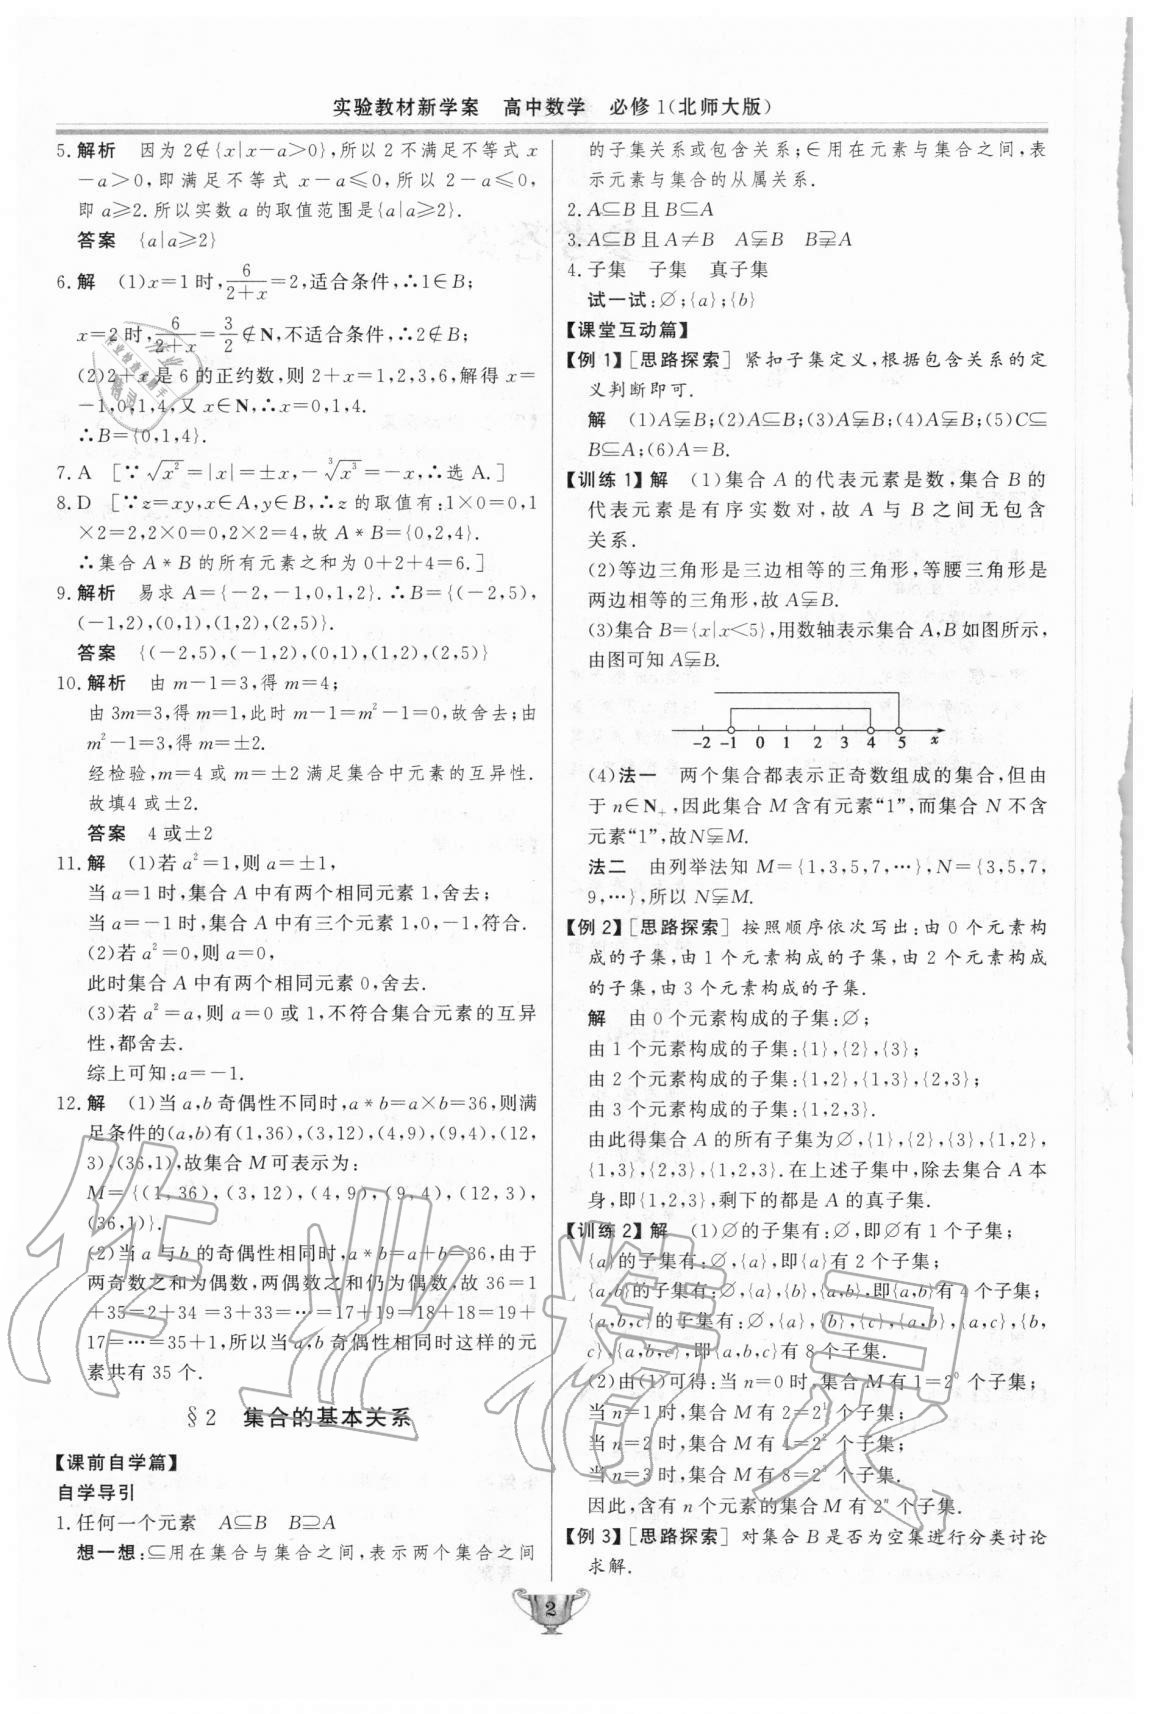 实验教材新学案 高中数学 必修1(北师大版)
5. 解析 因为2∉{x|x-a>0},所以2不满足不等式x
-a>0,即满足不等式x-a≤0,所以2-a≤0,
即a≥2.所以实数a的取值范围是{a|a≥2}.
答案 {a|a≥2}
6. 解 (1)x=1时,6/(2+x)=2,适合条件,∴1∈B;
x=2时,6/(2+x)=3/2∉N,不适合条件,∴2∉B;
(2)2+x是6的正约数,则2+x=1,2,3,6,解得x=
-1,0,1,4,又x∈N,∴x=0,1,4.
∴B={0,1,4}.
7. A [∵√x²=|x|=±x,-∛x³=-x,∴选A.]
8. D [∵z=xy,x∈A,y∈B,∴z的取值有:1×0=0,1
×2=2,2×0=0,2×2=4,故A*B={0,2,4}.
∴集合A*B的所有元素之和为0+2+4=6.]
9. 解析 易求A={-2,-1,0,1,2}.∴B={(-2,5),
(-1,2),(0,1),(1,2),(2,5)}.
答案 {(-2,5),(-1,2),(0,1),(1,2),(2,5)}
10. 解析 由m-1=3,得m=4;
由3m=3,得m=1,此时m-1=m²-1=0,故舍去;由
m²-1=3,得m=±2.
经检验,m=4或m=±2满足集合中元素的互异性.
故填4或±2.
答案 4或±2
11. 解 (1)若a²=1,则a=±1,
当a=1时,集合A中有两个相同元素1,舍去;
当a=-1时,集合A中有三个元素1,0,-1,符合.
(2)若a²=0,则a=0,
此时集合A中有两个相同元素0,舍去.
(3)若a²=a,则a=0或1,不符合集合元素的互异
性,都舍去.
综上可知:a=-1.
12. 解 (1)当a,b奇偶性不同时,a*b=a×b=36,则满
足条件的(a,b)有(1,36),(3,12),(4,9),(9,4),(12,
3),(36,1),故集合M可表示为:
M={(1,36),(3,12),(4,9),(9,4),(12,3),
(36,1)}.
(2)当a与b的奇偶性相同时,a*b=a+b=36,由于
两奇数之和为偶数,两偶数之和仍为偶数,故36=1
+35=2+34=3+33=…=17+19=18+18=19+
17=…=35+1,所以当a,b奇偶性相同时这样的元
素共有35个.
§2 集合的基本关系
【课前自学篇】
自学导引
1. 任何一个元素 A⊆B B⊇A
想一想:⊆用在集合与集合之间,表示两个集合之间
的子集关系或包含关系;∈用在元素与集合之间,表
示元素与集合的从属关系.
2. A⊆B且B⊆A
3. A⊆B且A≠B A⫋B B⫌A
4. 子集 子集 真子集
试一试:∅;{a};{b}
【课堂互动篇】
【例1】[思路探索] 紧扣子集定义,根据包含关系的定
义判断即可.
解 (1)A⫋B;(2)A⫋B;(3)A⫋B;(4)A⫋B;(5)C⊆
B⊆A;(6)A=B.
【训练1】解 (1)集合A的代表元素是数,集合B的
代表元素是有序实数对,故A与B之间无包含
关系.
(2)等边三角形是三边相等的三角形,等腰三角形是
两边相等的三角形,故A⫋B.
(3)集合B={x|x<5},用数轴表示集合A,B如图所示,
由图可知A⫋B.
-2 -1 0 1 2 3 4 5 x
(4)法一 两个集合都表示正奇数组成的集合,但由
于n∈N₊,因此集合M含有元素“1”,而集合N不含
元素“1”,故N⫋M.
法二 由列举法知M={1,3,5,7,…},N={3,5,7,
9,…},所以N⫋M.
【例2】[思路探索] 按照顺序依次写出:由0个元素构
成的子集,由1个元素构成的子集,由2个元素构成
的子集,由3个元素构成的子集.
解 由0个元素构成的子集:∅;
由1个元素构成的子集:{1},{2},{3};
由2个元素构成的子集:{1,2},{1,3},{2,3};
由3个元素构成的子集:{1,2,3}.
由此得集合A的所有子集为∅,{1},{2},{3},{1,2},
{1,3},{2,3},{1,2,3}.在上述子集中,除去集合A本
身,即{1,2,3},剩下的都是A的真子集.
【训练2】解 (1)∅的子集有:∅,即∅有1个子集;
{a}的子集有:∅,{a},即{a}有2个子集;
{a,b}的子集有:∅,{a},{b},{a,b},即{a,b}有4个子集;
{a,b,c}的子集有:∅,{a},{b},{c},{a,b},{a,c},{b,
c},{a,b,c},即{a,b,c}有8个子集.
(2)由(1)可得:当n=0时,集合M有1=2⁰个子集;
当n=1时,集合M有2=2¹个子集;
当n=2时,集合M有4=2²个子集;
当n=3时,集合M有8=2³个子集.
因此,含有n个元素的集合M有2ⁿ个子集.
【例3】[思路探索] 对集合B是否为空集进行分类讨论
求解.
2
作业精灵